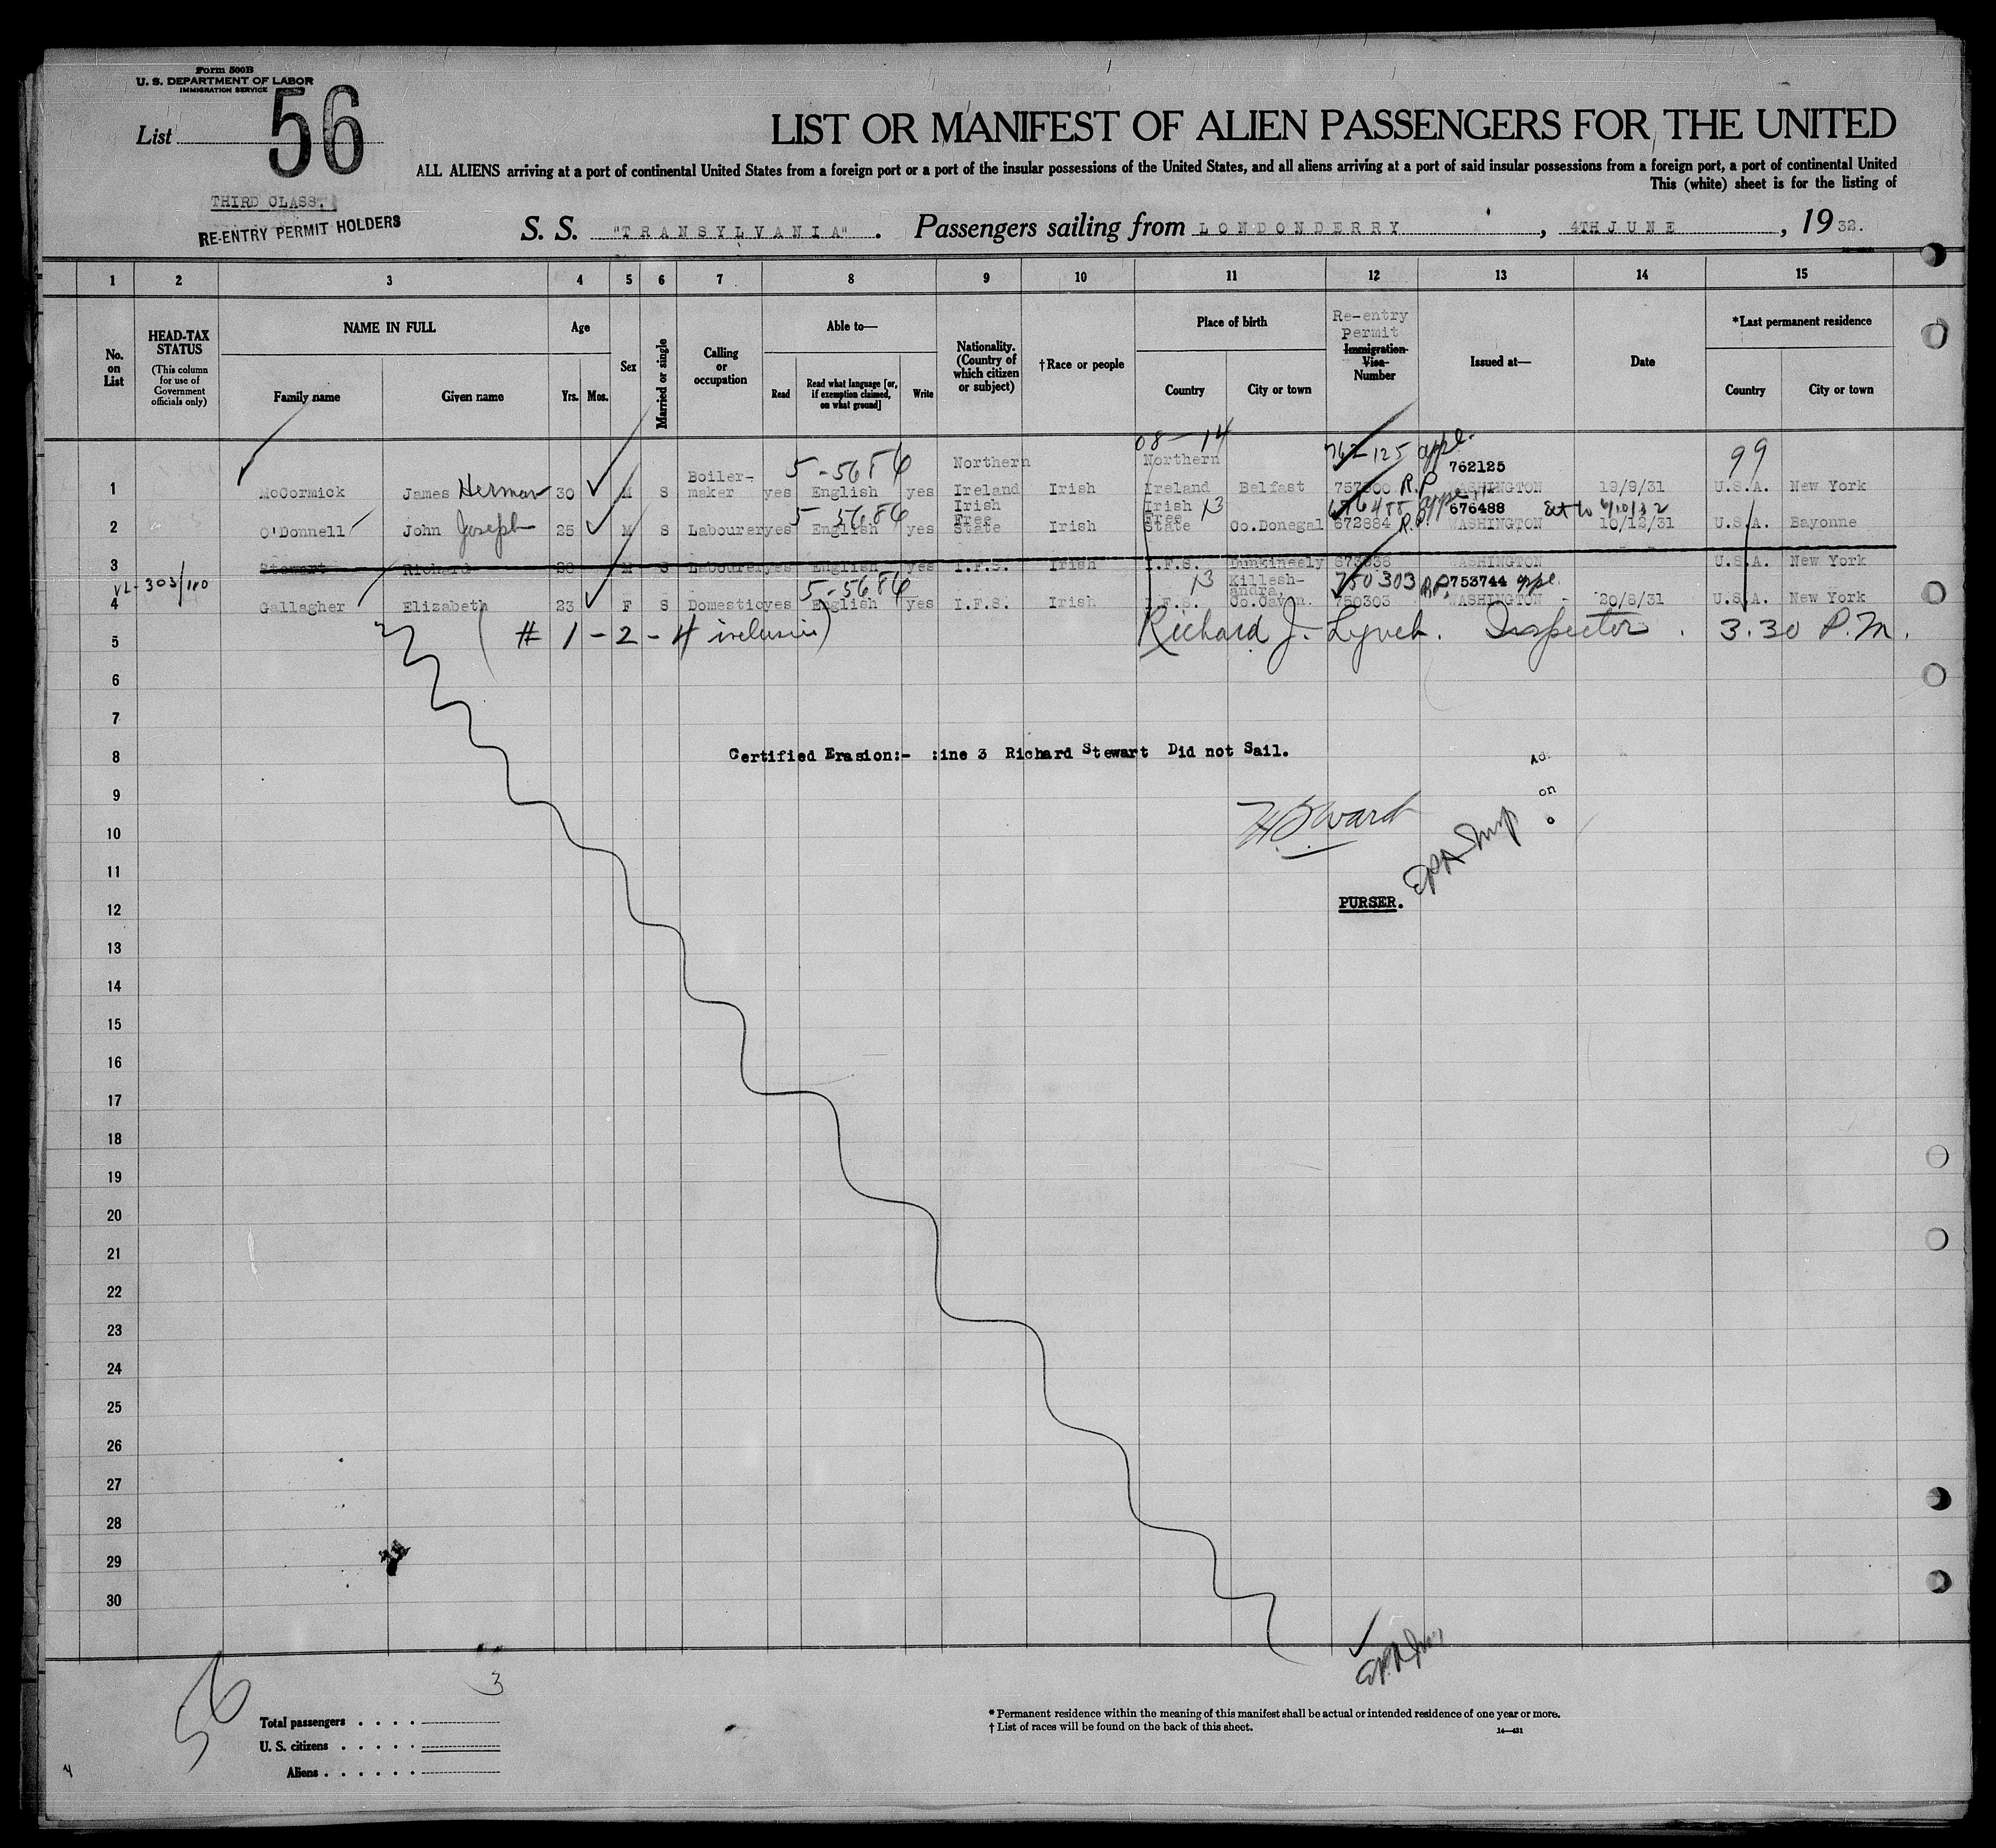 Form 500B
U. S. DEPARTMENT OF LABOR
IMMIGRATION SERVICE
List 56
LIST OR MANIFEST OF ALIEN PASSENGERS FOR THE UNITED
ALL ALIENS arriving at a port of continental United States from a foreign port or a port of the insular possessions of the United States, and all aliens arriving at a port of said insular possessions from a foreign port, a port of continental United
This (white) sheet is for the listing of
THIRD CLASS.
RE-ENTRY PERMIT HOLDERS
S. S. "TRANSYLVANIA". Passengers sailing from LONDONDERRY, 4TH JUNE, 1932.
1 2 3 4 5 6 7 8 9 10 11 12 13 14 15
No. on List
HEAD-TAX STATUS
(This column for use of Government officials only)
NAME IN FULL
Family name Given name
Age
Yrs. Mos.
Sex
Married or single
Calling or occupation
Able to—
Read Read what language [or, if exemption claimed, on what ground] Write
Nationality. (Country of which citizen or subject)
†Race or people
Place of birth
Country City or town
Re-entry Permit
Immigration Visa Number
Issued at—
Date
*Last permanent residence
Country City or town
08-14 762-125 appl. 99
5-5686 762125
1 McCormick James Herman 30 M S Boiler-maker yes English yes Northern Ireland Irish Northern Ireland Belfast R.P. WASHINGTON 19/9/31 U.S.A. New York
5 5686 13 676488 676488 6/10/32
2 O'Donnell John Joseph 25 M S Labourer yes English yes Irish Free State Irish Irish Free State Co.Donegal 672884 R.P. WASHINGTON 10/12/31 U.S.A. Bayonne
3 Stewart Richard M S Labourer yes English yes I.F.S. Irish I.F.S. Dunkineely WASHINGTON U.S.A. New York
VL-303/110 5-5686 13 750303 R.P. 753744 appl
4 Gallagher Elizabeth 23 F S Domestic yes English yes I.F.S. Irish I.F.S. Killesh-andra, Co.Cavan. 750303 WASHINGTON - 20/8/31 U.S.A. New York
5 (# 1 - 2 - 4 inclusive) Richard J. Lynch. Inspector. 3.30 P.M.
6
7
8 Certified Erasion:- :ine 3 Richard Stewart Did not Sail.
Ad.
on
9
10
11
12 PURSER.
13
14
15
16
17
18
19
20
21
22
23
24
25
26
27
28
29
30
56
3
Total passengers
U. S. citizens
Aliens
* Permanent residence within the meaning of this manifest shall be actual or intended residence of one year or more.
† List of races will be found on the back of this sheet.
14—431